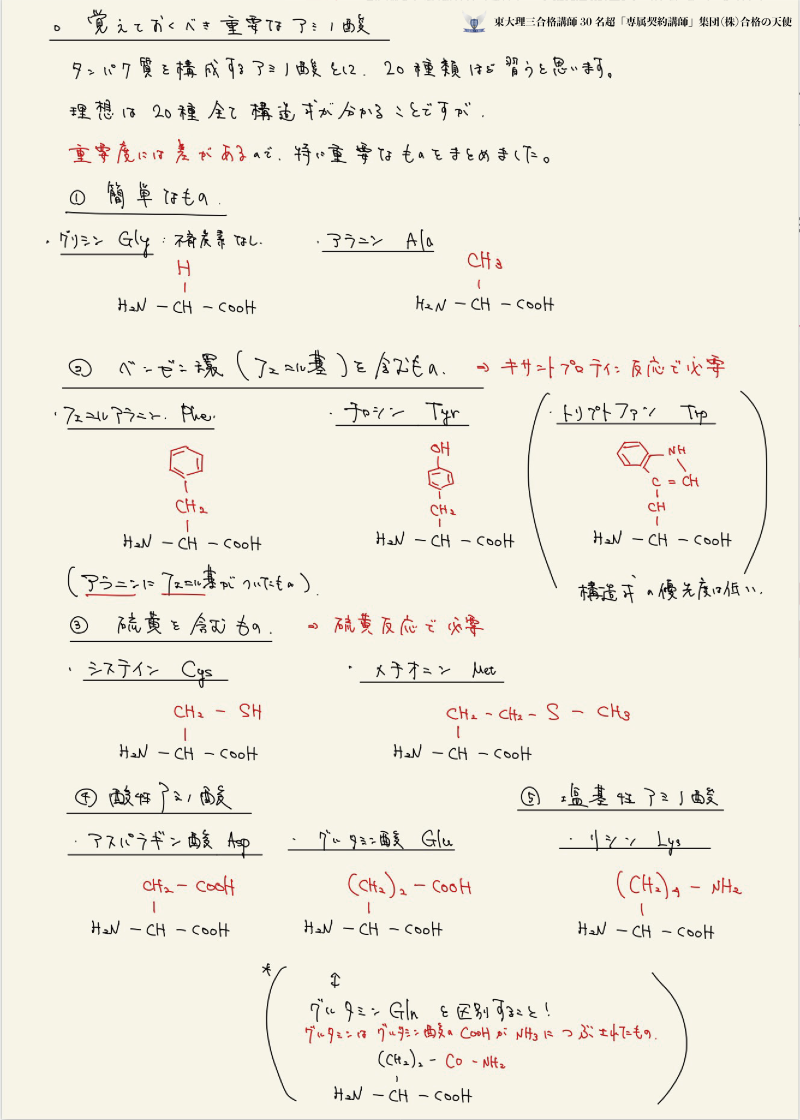 東大理三合格講師30名超「専属契約講師」集団(株)合格の天使
○ 覚えておくべき重要なアミノ酸
タンパク質を構成するアミノ酸として、20種類ほど習うと思います。
理想は20種全て構造式が分かることですが、
重要度には差があるので、特に重要なものをまとめました。
① 簡単なもの.
・グリシン Gly : 不斉炭素なし.
・アラニン Ala
H
CH3
H2N - CH - COOH
H2N - CH - COOH
② ベンゼン環(フェニル基)を含むもの. ⇒ キサントプロテイン反応で必要
・フェニルアラニン. Phe.
・チロシン Tyr
・トリプトファン Trp
OH
NH
C = CH
CH2
CH2
CH
H2N - CH - COOH
H2N - CH - COOH
H2N - CH - COOH
(アラニンにフェニル基がついたもの).
構造式の優先度は低い.
③ 硫黄を含むもの. ⇒ 硫黄反応で必要
・システイン Cys
・メチオニン Met
CH2 - SH
CH2 - CH2 - S - CH3
H2N - CH - COOH
H2N - CH - COOH
④ 酸性アミノ酸
⑤ 塩基性アミノ酸
・アスパラギン酸 Asp
・グルタミン酸 Glu
・リシン Lys
CH2 - COOH
(CH2)2 - COOH
(CH2)4 - NH2
H2N - CH - COOH
H2N - CH - COOH
H2N - CH - COOH
*
↕
グルタミン Gln を区別すること!
グルタミンはグルタミン酸のCOOHがNH3につぶされたもの.
(CH2)2 - CO - NH2
H2N - CH - COOH